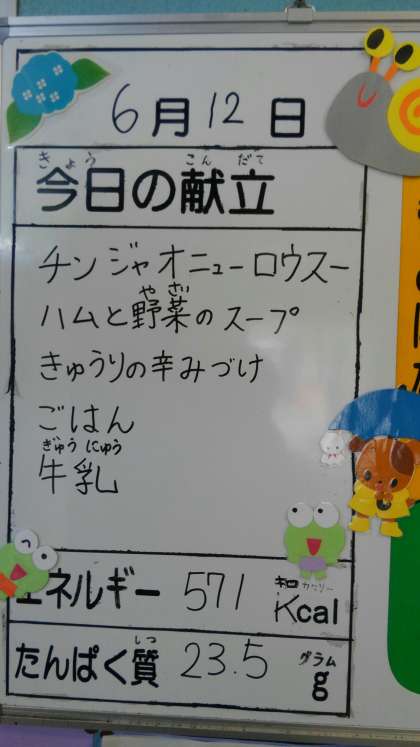 6月12日
きょう こんだて
今日の献立
チンジャオニューロウスー
やさい
ハムと野菜のスープ
きゅうりの辛みづけ
ごはん
ぎゅうにゅう
牛乳
エネルギー 571 キロカロリー Kcal
しつ グラム
たんぱく質 23.5 g